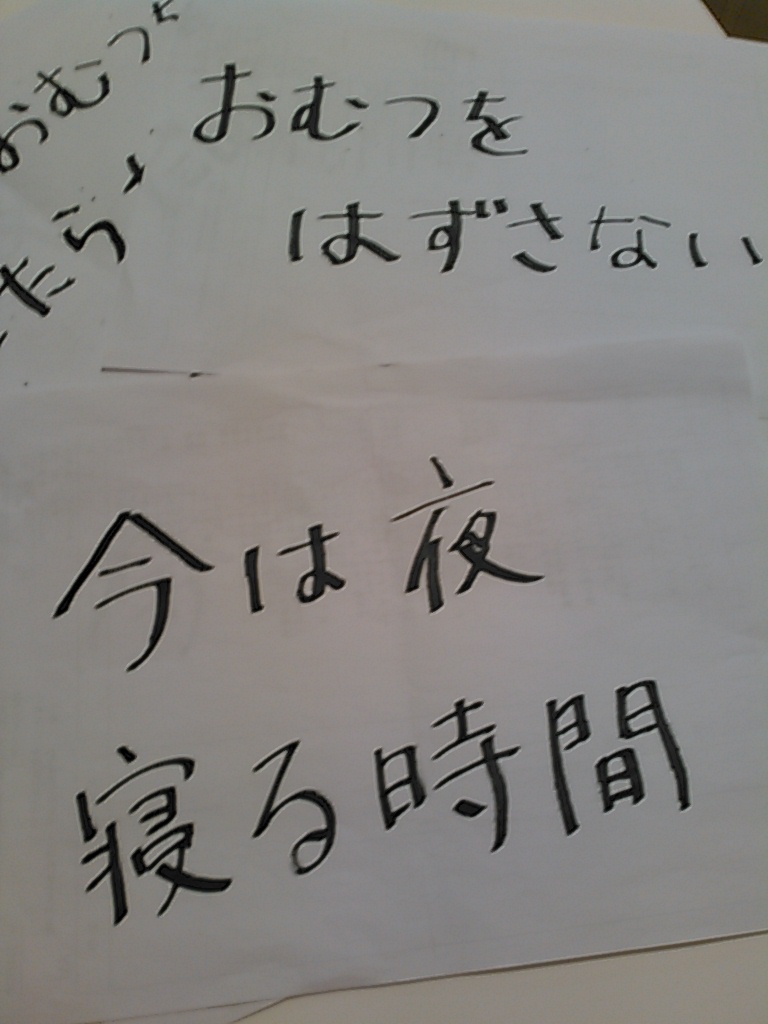 おむつ
たら
おむつを
はずさない
今は夜
寝る時間